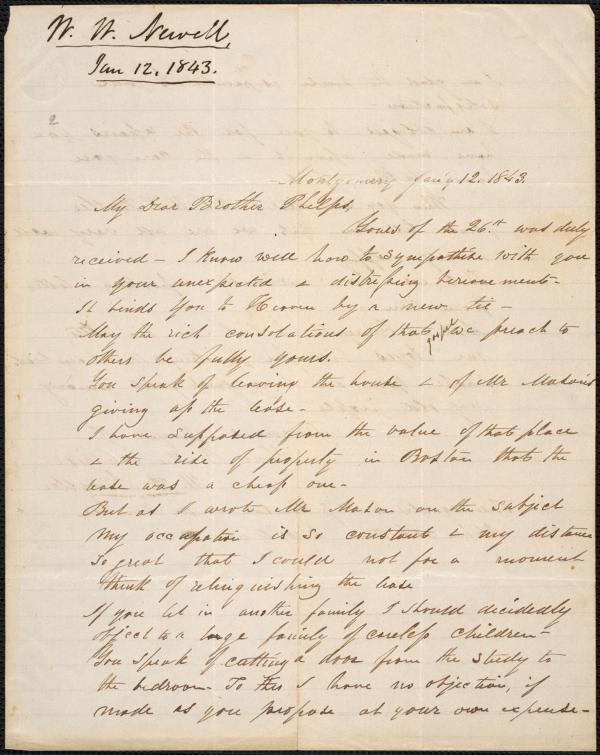 W. W. Newell,
Jan 12, 1843.
2
Montgomery Jan'y 12. 1843.
My Dear Brother Phelps,
Yours of the 26.th was duly
received - I know well how to sympathise with you
in your unexpected & distressing bereavement -
It binds you to Heaven by a new tie -
May the rich consolations of that gospel we preach to
others be fully yours.
You speak of leaving the house & of Mr Mason's
giving up the lease -
I have supposed from the value of that place
& the rise of property in Boston that the
lease was a cheap one -
But as I wrote Mr Mason on the subject
my occupation is so constant & my distance
so great that I could not for a moment
think of relinquishing the lease
If you let in another family I should decidedly
object to a large family of careless children -
You speak of cutting a door from the study to
the bedroom - To this I have no objection, if
made as you propose at your own expense -